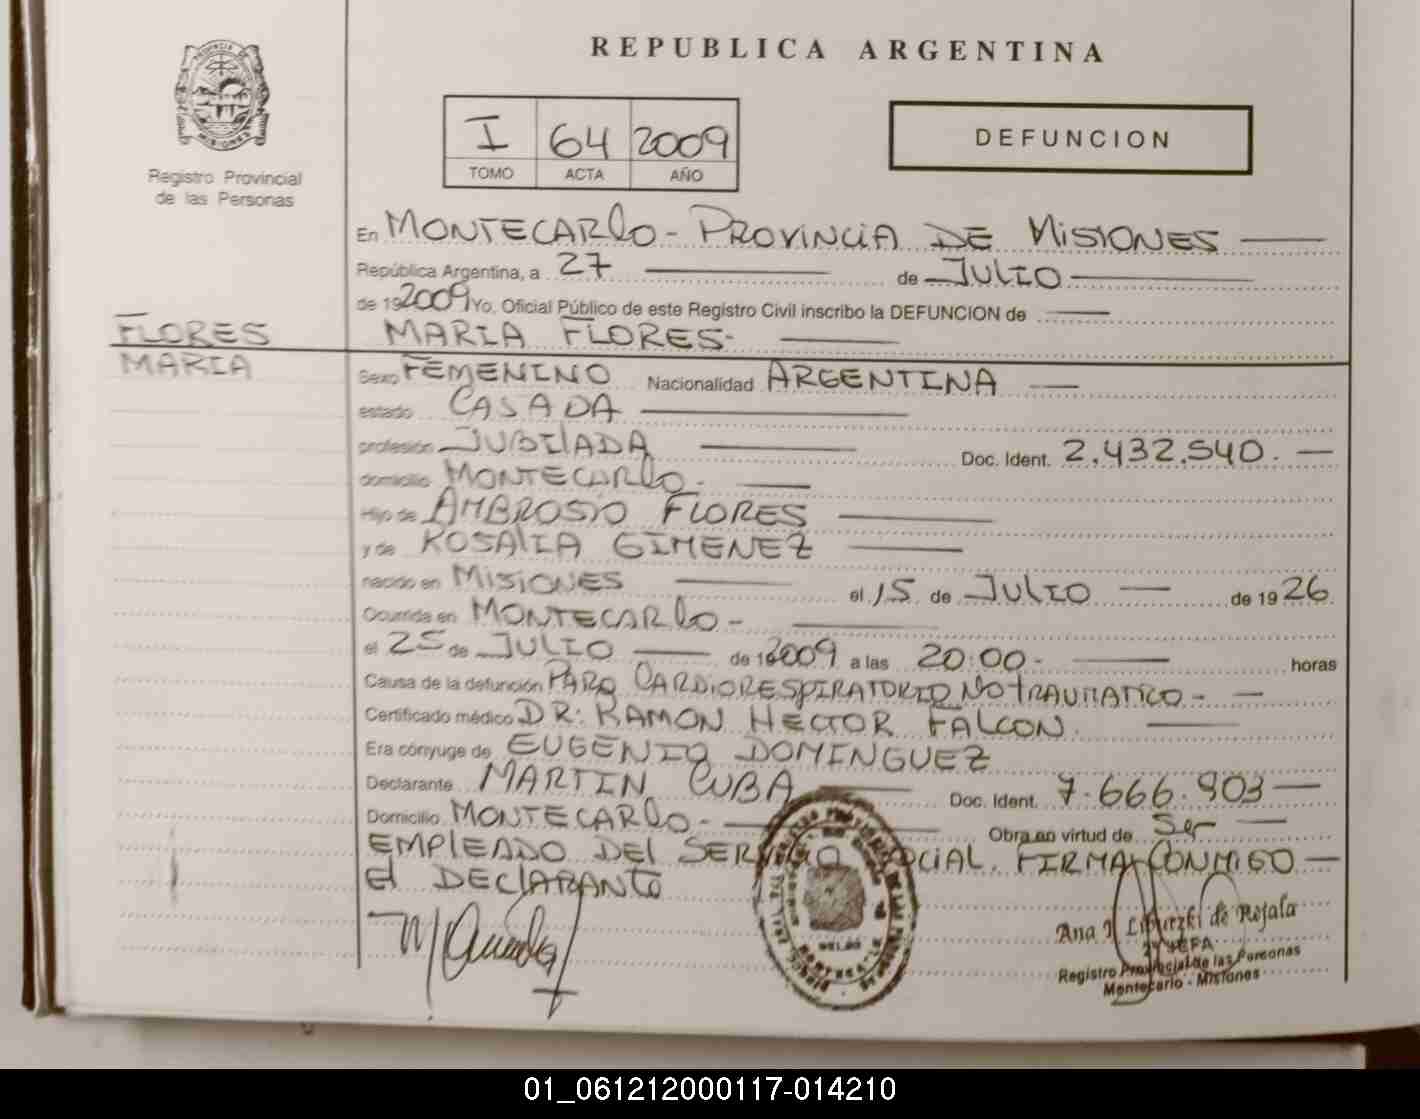 REPUBLICA ARGENTINA
I 64 2009
TOMO ACTA AÑO
DEFUNCION
Registro Provincial
de las Personas
En MONTECARLO - PROVINCIA DE MISIONES
República Argentina, a 27 de JULIO
de 19 2009 Yo, Oficial Público de este Registro Civil inscribo la DEFUNCION de
FLORES MARIA FLORES-
MARIA
Sexo FEMENINO Nacionalidad ARGENTINA
estado CASADA
profesión JUBILADA Doc. Ident. 2.432.540.
domicilio MONTECARLO-
Hijo de AMBROSIO FLORES
y de ROSALIA GIMENEZ
nacido en MISIONES el 15 de JULIO de 19 26
Ocurrida en MONTECARLO-
el 25 de JULIO de 2009 a las 20:00- horas
Causa de la defunción PARO CARDIORESPIRATORIO NO TRAUMATICO-
Certificado médico DR: RAMON HECTOR FALCON.
Era cónyuge de EUGENIO DOMINGUEZ
Declarante MARTIN CUBA Doc. Ident. 7.666.903
Domicilio MONTECARLO- Obra en virtud de Ser
EMPLEADO DEL SERVICIO SOCIAL. FIRMA CONMIGO
El DECLARANTE
Registro Provincial de las Personas
Montecarlo - Misiones
01_061212000117-014210